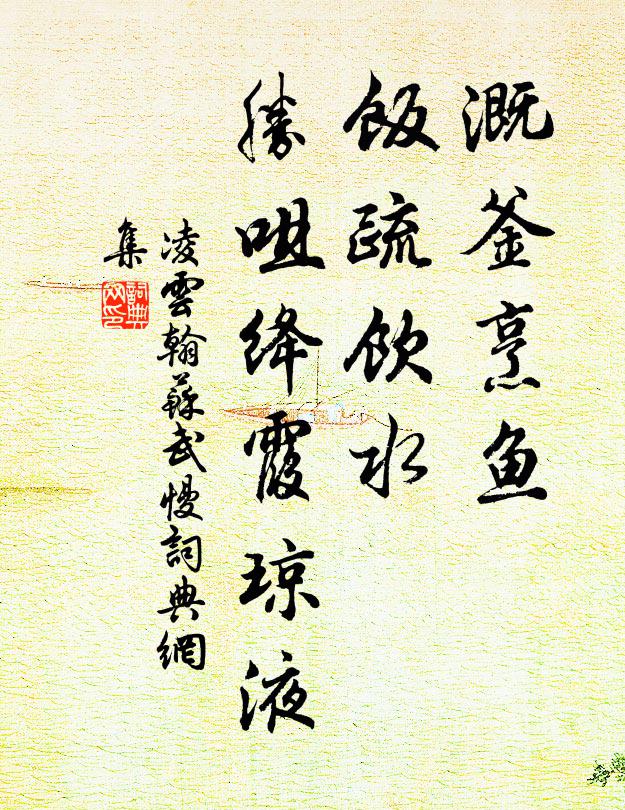 溉釜烹鱼
飯疏飲水
勝咀绛霞琼液
凌雲翰蘇武慢詞典網
集
詞典網印